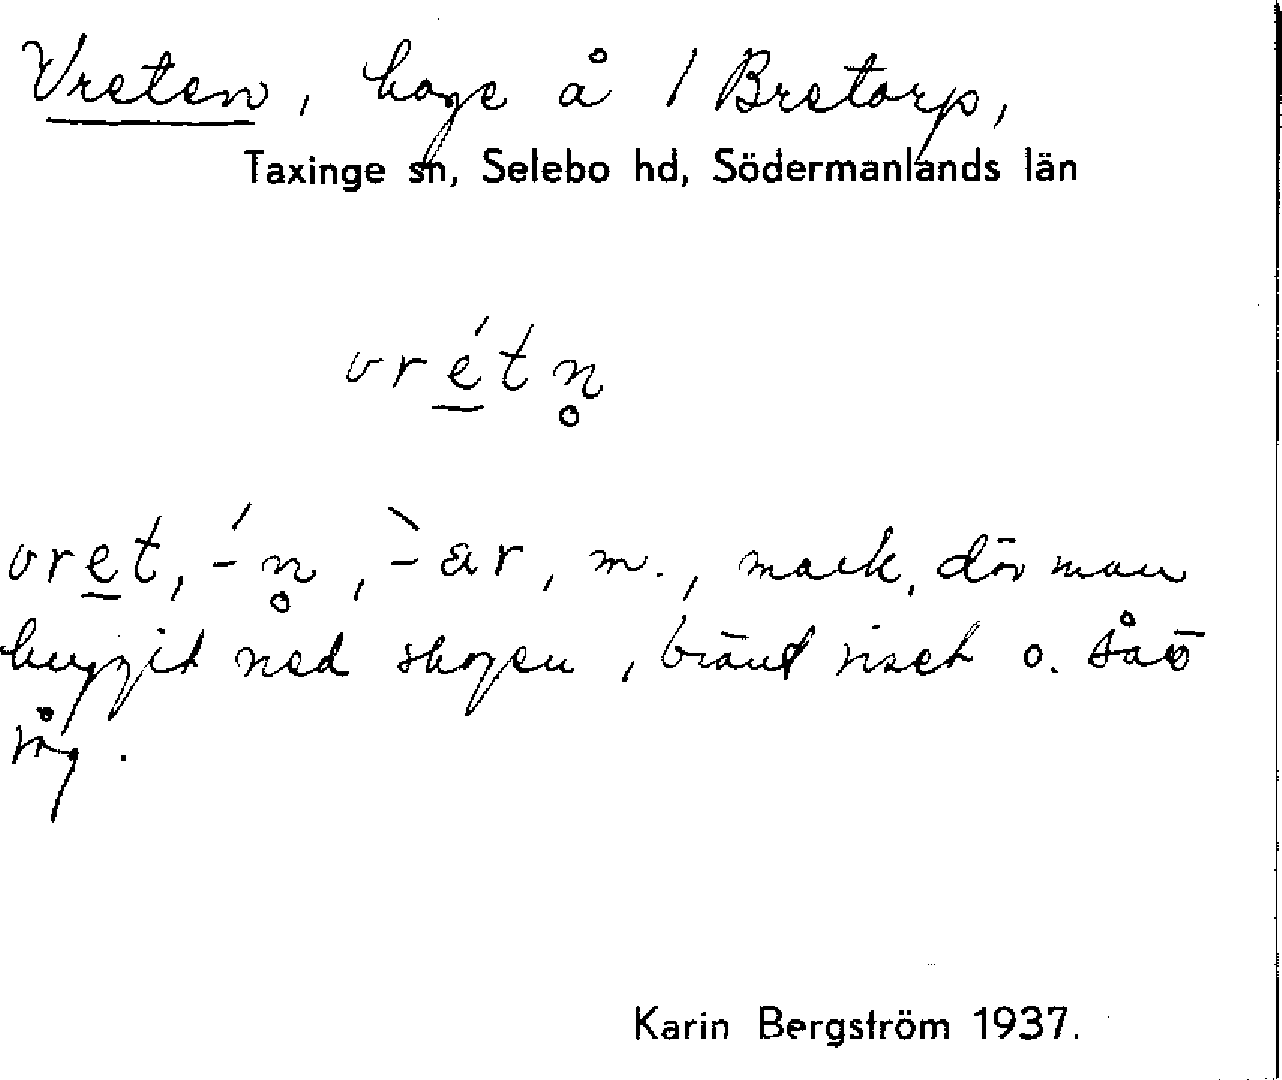 Vreten, hage å / Bretorp,
Taxinge sn, Selebo hd, Södermanlands län
vrétn̥
vret, -́n̥, -̀ar, m., mark, där man
huggit ned skogen, bränt riset o. sått
råg.
Karin Bergström 1937.